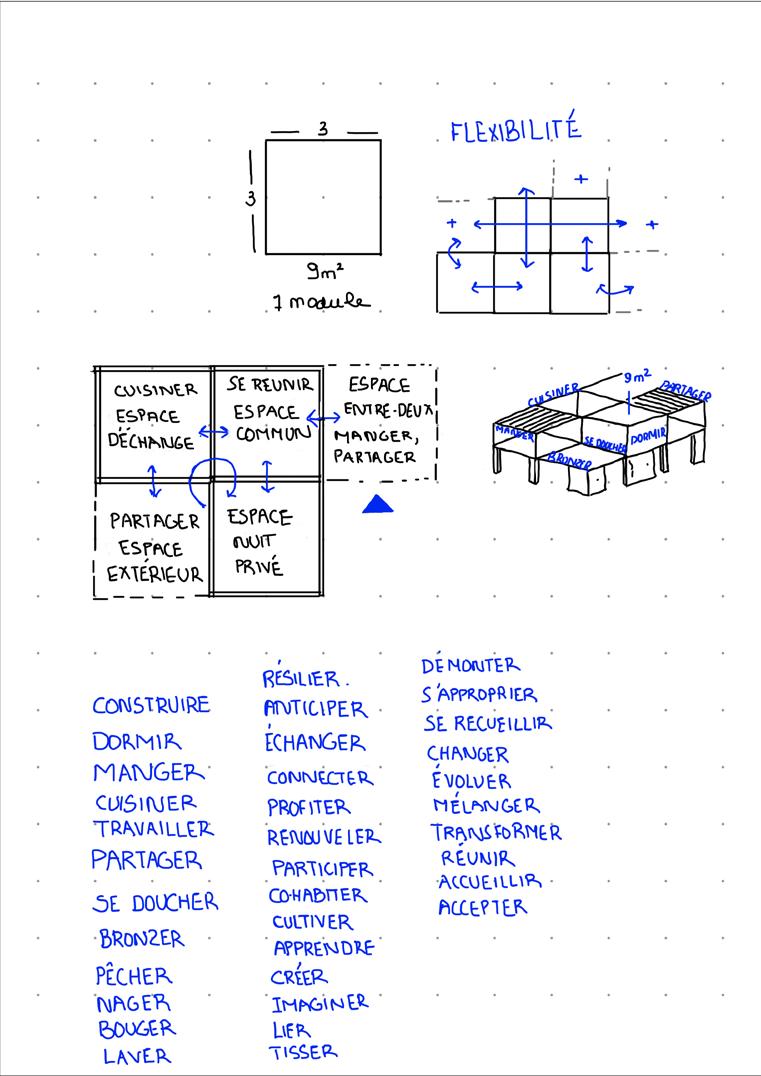 3
3
9m²
1 module
FLEXIBILITÉ
+
+
+
CUISINER
ESPACE
DÉCHANGE
SE REUNIR
ESPACE
COMMUN
ESPACE
ENTRE-DEUX
MANGER,
PARTAGER
PARTAGER
ESPACE
EXTÉRIEUR
ESPACE
NUIT
PRIVÉ
9m²
CUISINER
PARTAGER
MANGER
SE DOUCHER
DORMIR
BRONZER
CONSTRUIRE
DORMIR
MANGER
CUISINER
TRAVAILLER
PARTAGER
SE DOUCHER
BRONZER
PÊCHER
NAGER
BOUGER
LAVER
RÉSILIER.
ANTICIPER
ÉCHANGER
CONNECTER
PROFITER
RENOUVELER
PARTICIPER
COHABITER
CULTIVER
APPRENDRE
CRÉER
IMAGINER
LIER
TISSER
DÉMONTER
S'APPROPRIER
SE RECUEILLIR
CHANGER
ÉVOLUER
MÉLANGER
TRANSFORMER
RÉUNIR
ACCUEILLIR
ACCEPTER